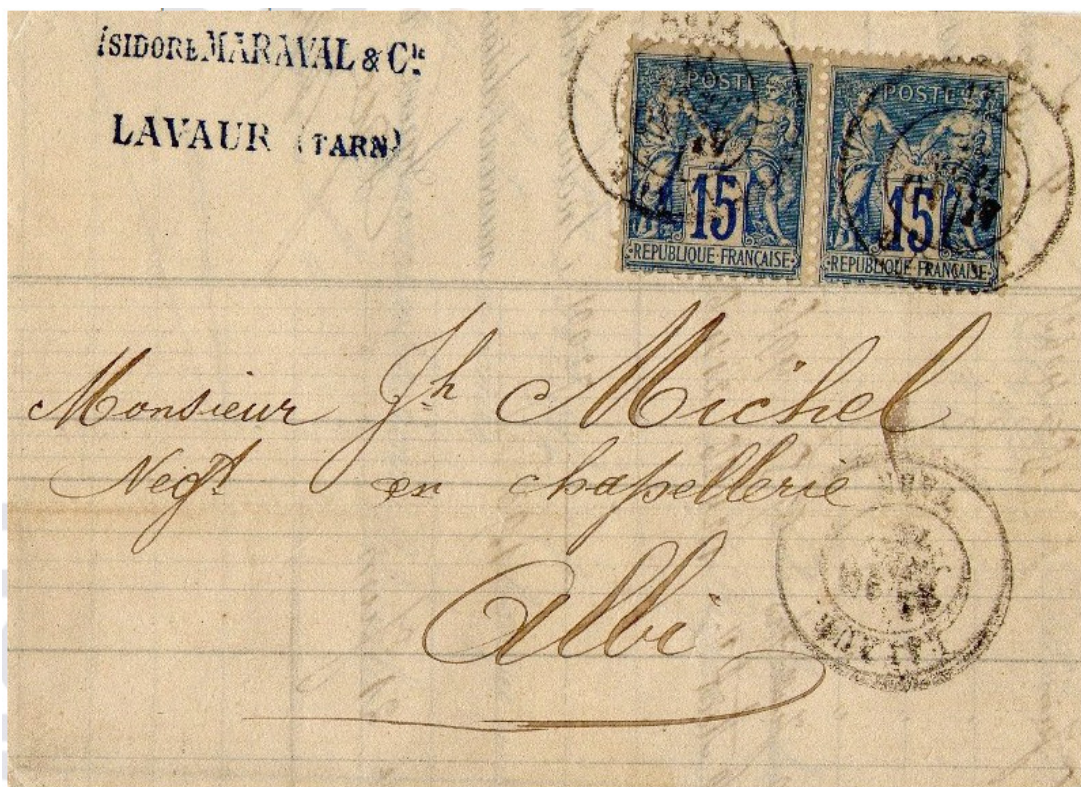 ISIDORE MARAVAL & Cie
LAVAUR (TARN)
POSTE
15
REPUBLIQUE FRANÇAISE
POSTE
15
REPUBLIQUE FRANÇAISE
Monsieur Jh Michel
Negt en chapellerie
Albi
TARN
LAVAUR